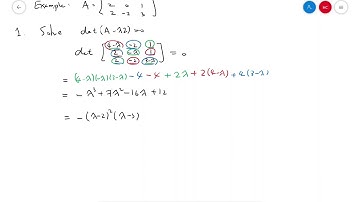 Example: A = [2 0 1
2 -2 3]
1. Solve det(A-λI)=0
det [4-λ -2 1
2 -λ 1 = 0
2 -2 3-λ]
= (4-λ)(-λ)(3-λ) -4 -4 + 2λ + 2(4-λ) + 4(3-λ)
= -λ³ + 7λ² - 16λ + 12
= -(λ-2)² (λ-3)